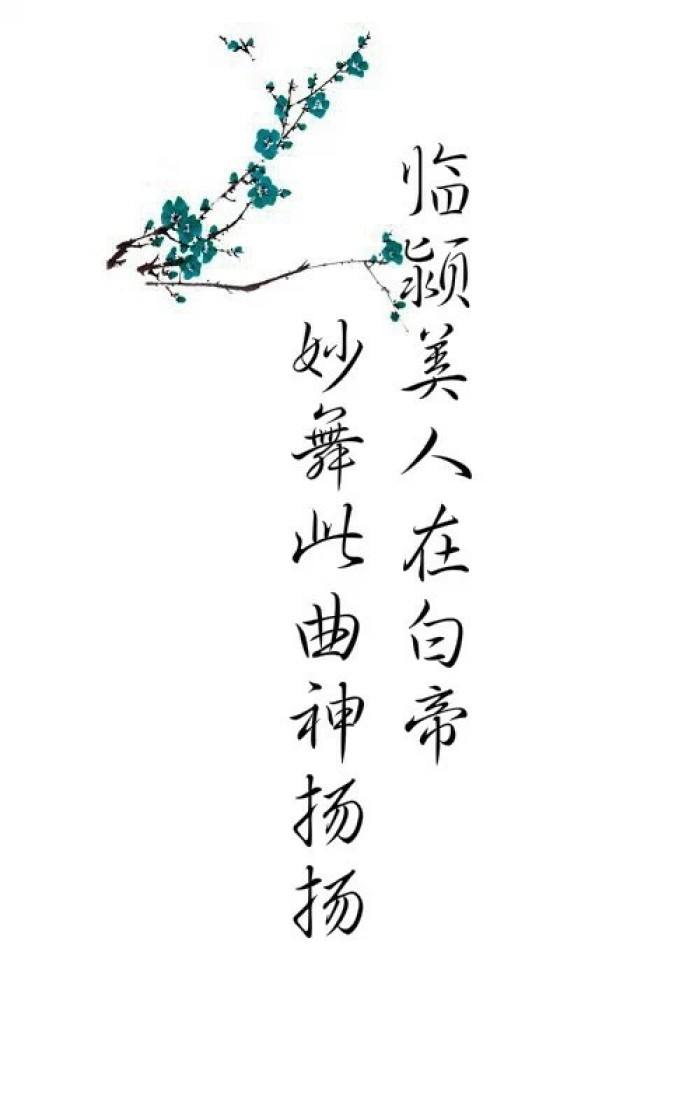 临颍美人在白帝
妙舞此曲神扬扬